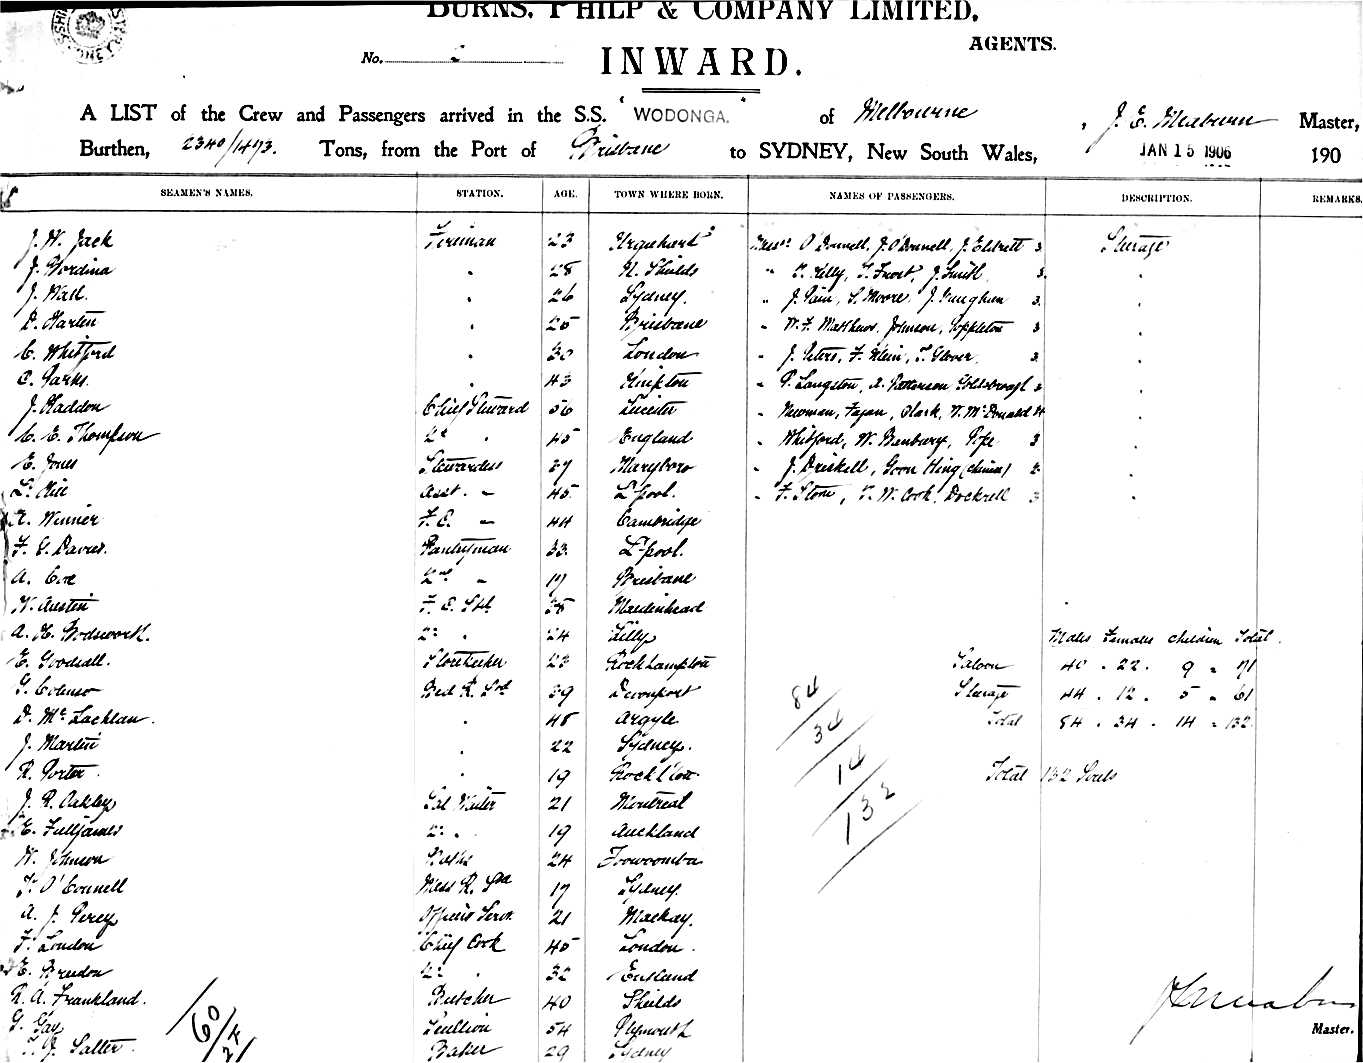 BURNS, PHILP & COMPANY LIMITED,
AGENTS.
No. 2
INWARD.
A LIST of the Crew and Passengers arrived in the S.S. "WODONGA." of Melbourne, J. E. Meaburn Master,
Burthen, 2340/1473. Tons, from the Port of Brisbane to SYDNEY, New South Wales, JAN 15 1906 190
SEAMEN'S NAMES. STATION. AGE. TOWN WHERE BORN. NAMES OF PASSENGERS. DESCRIPTION. REMARKS.
J. W. Jack Fireman 23 Urquhart Messrs O'Donnell, J. O'Donnell, J. Eldrett 3 Steerage
J. Gordina " 28 N. Shields " Kelly, T. Frost, J. Smith 3 "
J. Wall " 26 Sydney. " J. Pain, S. Moore, J. Vaughan 3 "
D. Harten " 25 Brisbane " W. F. Matthews, Johnson, Coppleton 3 "
C. Whitford " 30 London " J. Peters, F. Klein, T. Glover 3 "
C. Parks. " 43 Kempton " P. Langston, A. Patterson Goldsbrough 3 "
J. Haddon Chief Steward 56 Leicester " Newman, Fagan, Clark, McDonald 4 "
C. E. Thompson 2nd " 45 England " Whitford, W. Banbury, Pope 3 "
E. Jones Stewardess 37 Maryboro " J. Driskell, Goon Hing (Chinese) 2 "
L. Hill Asst. " 45 L'pool. " F. Stone, W. Cook, Dockrell 3 "
A. Winner F. C. " 44 Cambridge
F. G. Davies. Pantryman 33 L'pool.
A. Coe 2nd " 17 Brisbane
W. Austin F. C. Std 38 Maidenhead
A. H. Wodsworth. 2nd " 24 Lilly
E. Goodsall. Storekeeper 23 Rockhampton
G. Colenso Bed R. Std 39 Devonport
D. McLachlan. " 48 Argyle
J. Martin " 22 Sydney.
R. Porter. " 19 Rockh'ton.
J. R. Oakley Sal Waiter 21 Montreal
E. Fulljames 2nd " 19 Auckland
W. Johnson Baths 24 Toowoomba
T. O'Connell Mess R. Std 17 Sydney.
A. J. Percy Officers Servt. 21 Mackay.
F. London Chief Cook 45 London.
E. Breedon 2nd " 32 England
R. A. Frankland. Butcher 40 Shields
G. Gay Scullion 54 Plymouth
Salter. Baker 29 Sydney
Males Females Children Total.
Saloon 40 . 22 . 9 " 71
Steerage 44 . 12 . 5 " 61
Total 84 . 34 . 14 " 132
Total 132 Souls
84
34
14
132
60
Master.